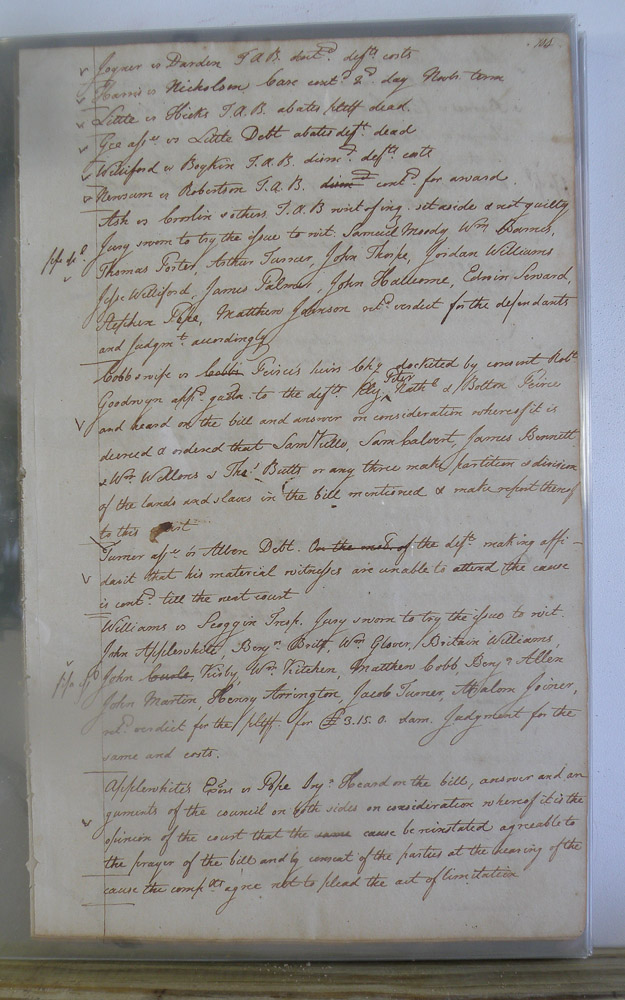 Joyner vs Darden T.A.B. doct.d defts costs
Harris vs Nicholson Case cont.d 2d day Novr term
Little vs Hicks T.A.B. abates pltff dead
Gee assee vs Little Debt abates deft. dead
Williford vs Boykin T.A.B. dism.d defts costs
Newsum vs Robertson T.A.B. dism.d cont.d for award
Ash vs Croslin & others T.A.B writ of inq. set aside & not guilty
Jury sworn to try the issue to wit. Samuel Moody Wm Barnes,
Thomas Porter, Arthur Turner, John Thorpe, Jordan Williams
Jesse Williford, James Palmer, John Hallcome, Edwin Seward,
Stephen Pope, Matthew Johnson ret.d verdict for the defendants
and Judgmt. accordingly
Cobb & wife vs Cobbs Peirce's heirs Chy docketed by consent Robt
Goodwyn appd. guardn. to the defts. Peter Nathl & Bolton Peirce
and heard on the bill and answer on consideration whereof it is
decreed & ordered that Saml Kello, Sam Calvert, James Bennett
& Wm Wellons & Thos. Butts or any three make partition & division
of the lands and slaves in the bill mentioned & make report thereof
to this
Turner assee vs Allen Debt. On the mot. of the deft. making affi-
davit that his material witnesses are unable to attend the cause
is cont.d till the next court
Williams vs Scoggin Tresp. Jury sworn to try the issue to wit.
John Applewhite, Benjn Britt, Wm Glover, Britain Williams,
John Kirby, Wm Kitchen, Matthew Cobb, Benjn Allen
John Martin, Henry Arrington, Jacob Turner, Absalom Joiner,
ret.d verdict for the pltff. for £3.15.0. dam. Judgment for the
same and costs.
Applewhite's Exors vs Pope Heard on the bill, answer and ar
guments of the council on both sides on consideration whereof it is the
opinion of the court that the same cause be reinstated agreable to
the prayer of the bill and by consent of the parties at the hearing of the
cause the complts agree not to plead the act of limitation